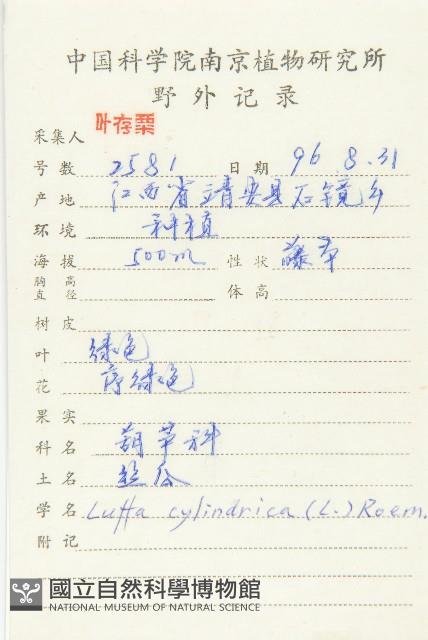 中国科学院南京植物研究所
野外记录
采集人 叶存粟
号数 2581 日期 96.8.31
产地 江西省靖安县石镜乡
环境 种植
海拔 500m 性状 藤本
胸高直径 体高
树皮
叶 绿色
花 序绿色
果实
科名 葫芦科
土名 丝瓜
学名 Luffa cylindrica (L.) Roem.
附记
國立自然科學博物館
NATIONAL MUSEUM OF NATURAL SCIENCE